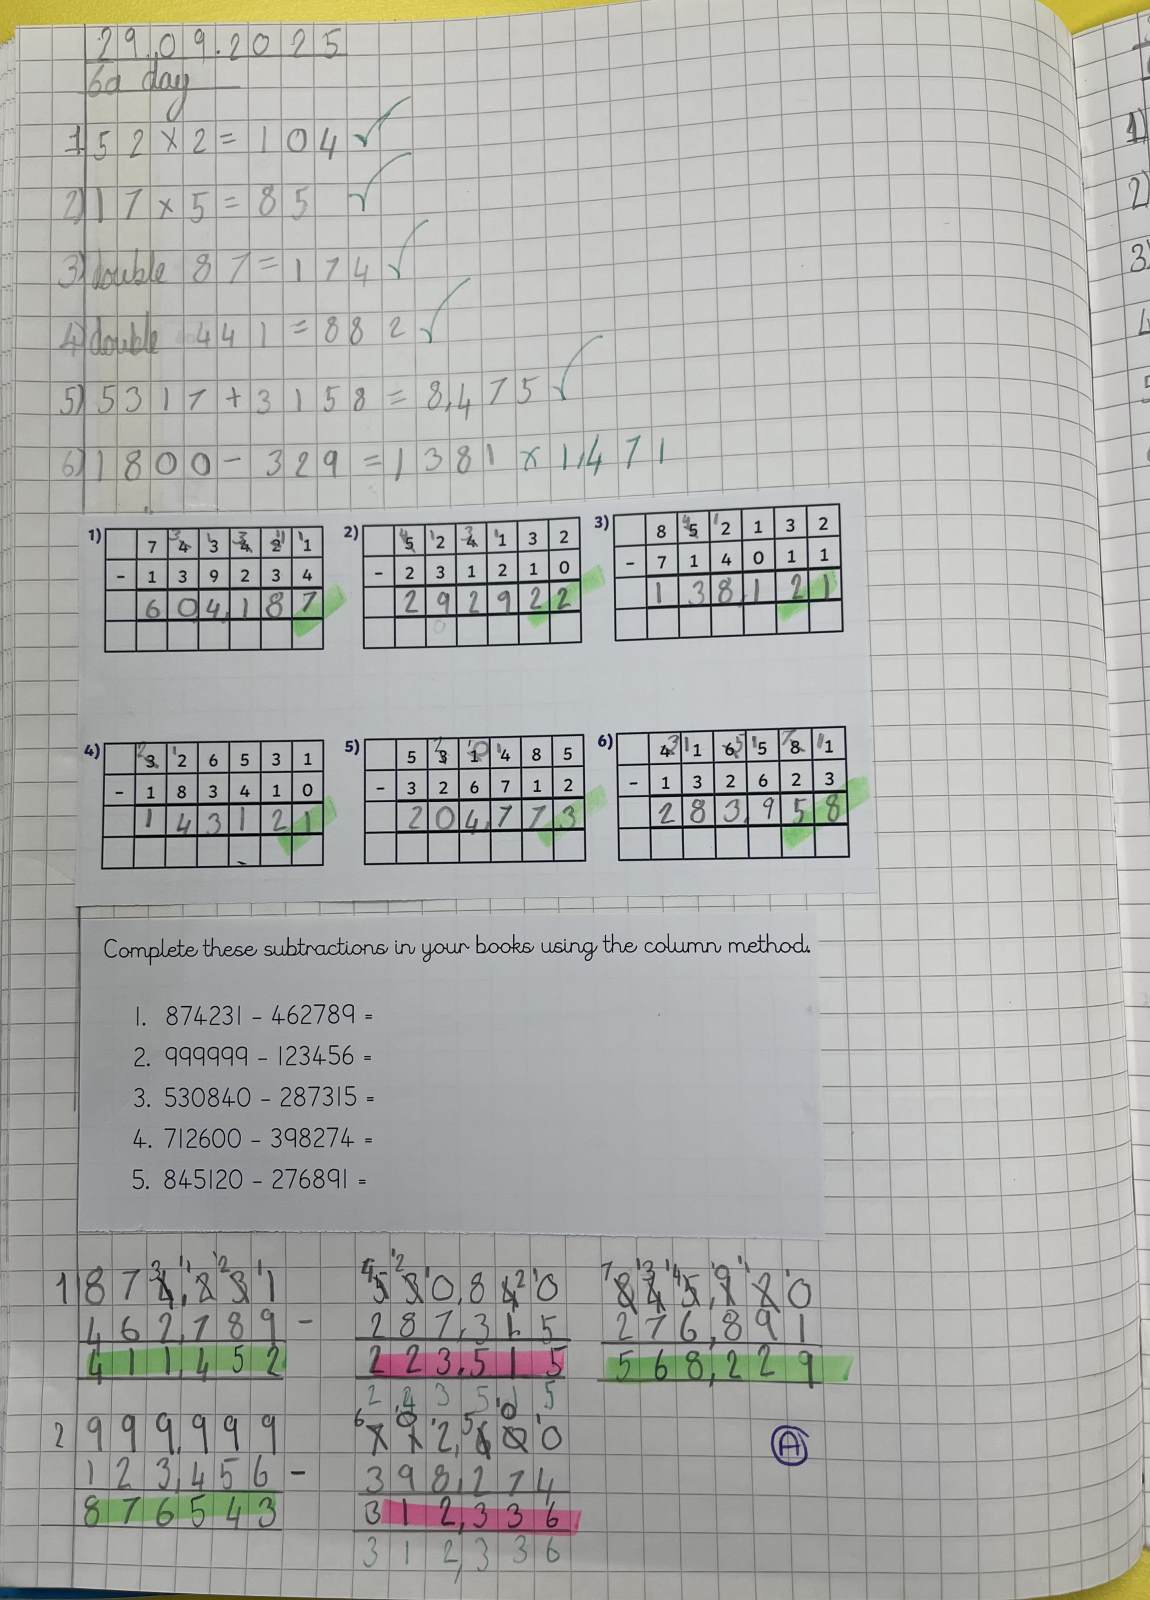 29.09.2025
6a day
1) 52 × 2 = 104 ✓
2) 17 × 5 = 85 ✓
3) double 87 = 174 ✓
4) double 441 = 882 ✓
5) 5317 + 3158 = 8,475 ✓
6) 1800 - 329 = 1381 × 1,471
1) 7 4 3 4 2 1
- 1 3 9 2 3 4
6 0 4, 1 8 7
2) 5 2 4 1 3 2
- 2 3 1 2 1 0
2 9 2 9 2 2
3) 8 5 2 1 3 2
- 7 1 4 0 1 1
1 3 8, 1 2 1
4) 3 2 6 5 3 1
- 1 8 3 4 1 0
1 4 3 1 2 1
5) 5 3 1 4 8 5
- 3 2 6 7 1 2
2 0 4, 7 7 3
6) 4 1 6 5 8 1
- 1 3 2 6 2 3
2 8 3, 9 5 8
Complete these subtractions in your books using the column method.
1. 874231 - 462789 =
2. 999999 - 123456 =
3. 530840 - 287315 =
4. 712600 - 398274 =
5. 845120 - 276891 =
1 874,231
462,789 -
411,452
530,840
287,315
223,515
2 4 3 5 5
845,120
276,891
568,229
2 999,999
123,456 -
876543
712,600
398,274
312,336
312,336
A
1)
2)
3)